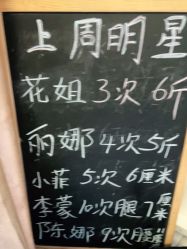 上周明星
花姐3次6斤
丽娜4次5斤
小菲5次6厘米
李蒙10次腿7厘米
陈娜9次腰